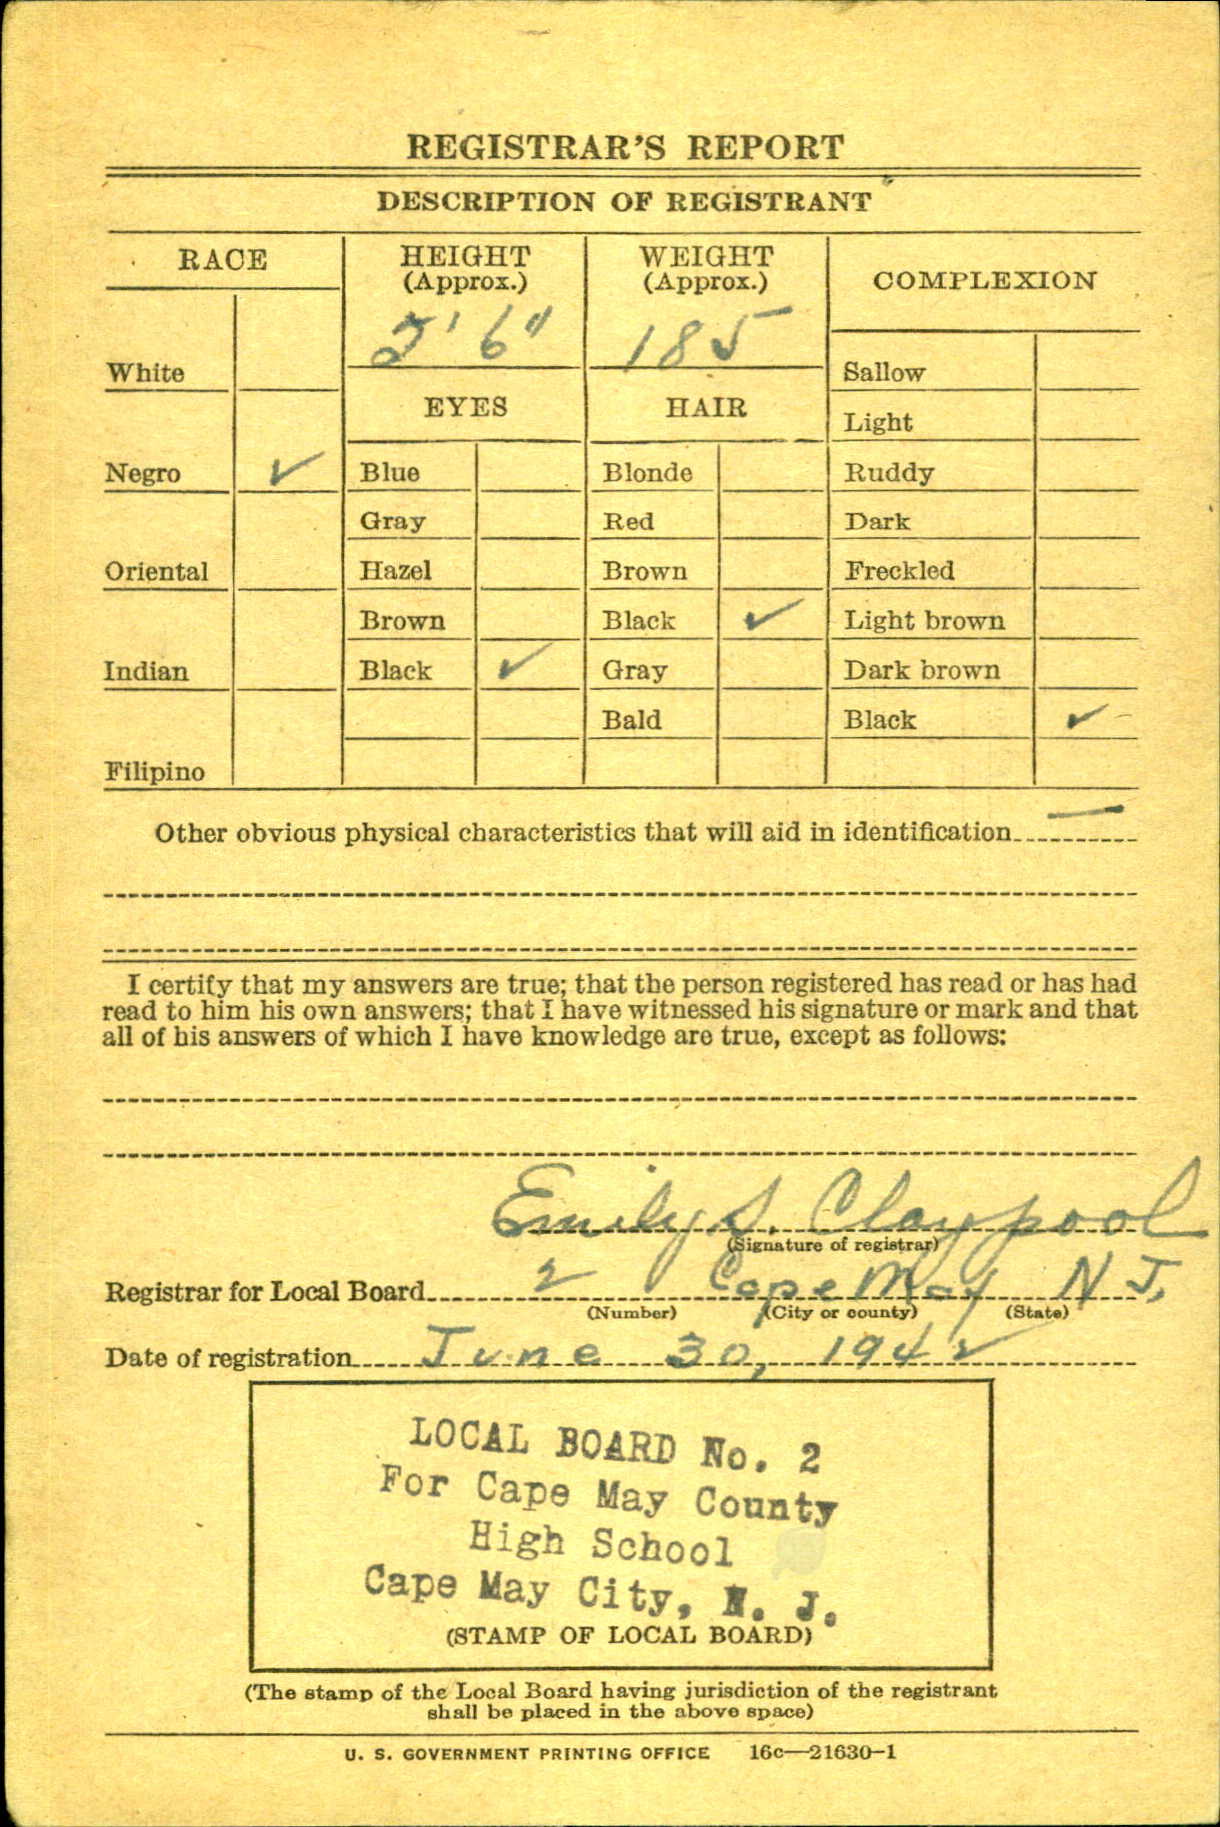 REGISTRAR'S REPORT
DESCRIPTION OF REGISTRANT
RACE
White
Negro ✓
Oriental
Indian
Filipino
HEIGHT
(Approx.)
5' 6"
WEIGHT
(Approx.)
185
EYES
Blue
Gray
Hazel
Brown
Black ✓
HAIR
Blonde
Red
Brown
Black ✓
Gray
Bald
COMPLEXION
Sallow
Light
Ruddy
Dark
Freckled
Light brown
Dark brown
Black ✓
Other obvious physical characteristics that will aid in identification —
I certify that my answers are true; that the person registered has read or has had
read to him his own answers; that I have witnessed his signature or mark and that
all of his answers of which I have knowledge are true, except as follows:
Emily S. Claypool
(Signature of registrar)
Registrar for Local Board 2 Cape May N J.
(Number) (City or county) (State)
Date of registration June 30, 1942
LOCAL BOARD No. 2
For Cape May County
High School
Cape May City, N. J.
(STAMP OF LOCAL BOARD)
(The stamp of the Local Board having jurisdiction of the registrant
shall be placed in the above space)
U. S. GOVERNMENT PRINTING OFFICE 16c—21630-1